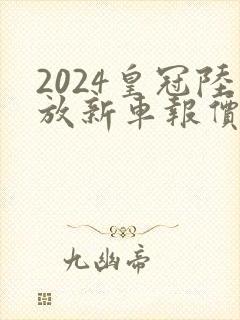 2024皇冠陸
放新車報價
九幽帝